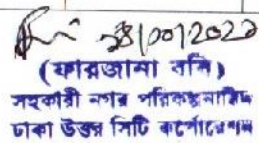 (ফারজানা ববি)
সহকারী নগর পরিকল্পনাবিদ
ঢাকা উত্তর সিটি কর্পোরেশন